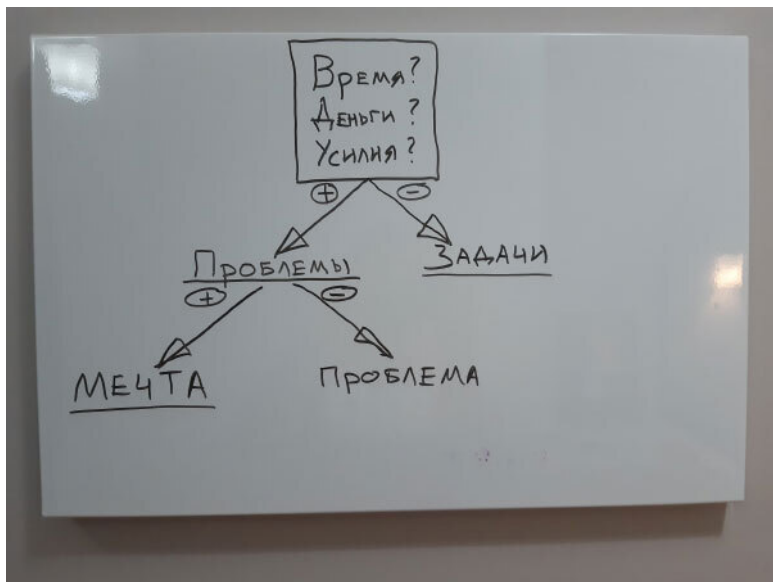 Время?
Деньги?
Усилия?
+ -
Проблемы Задачи
+ -
Мечта Проблема